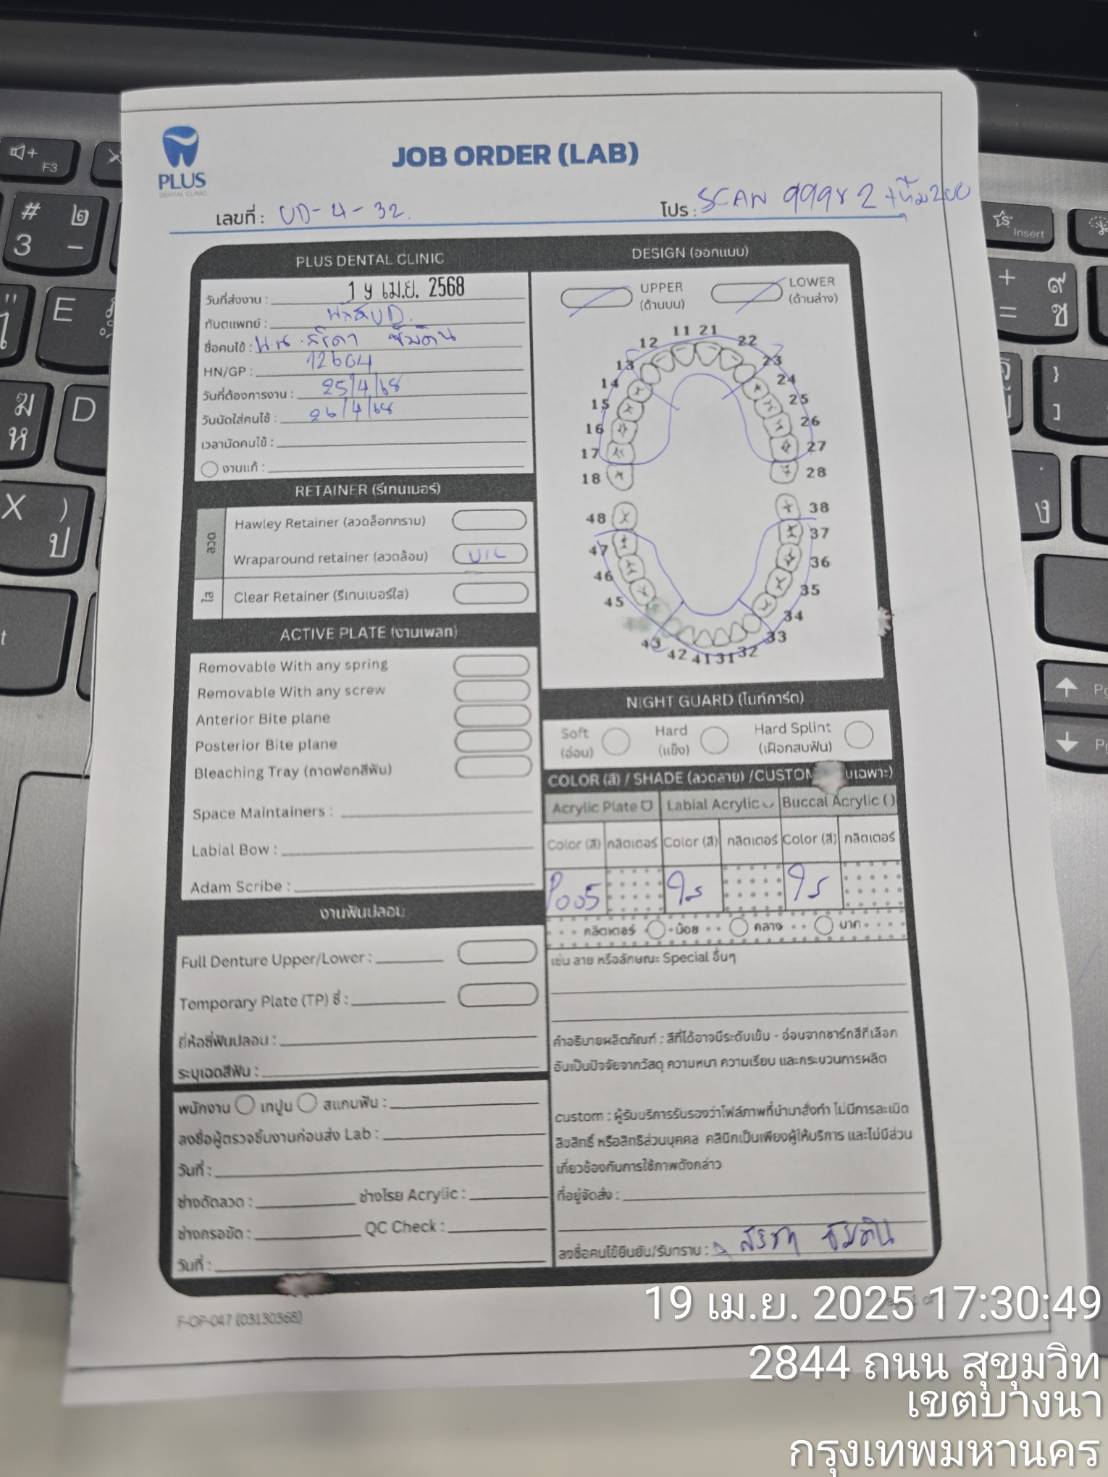 PLUS
DENTAL CLINIC
JOB ORDER (LAB)
เลขที่ : UD-4-32
โปร : SCAN 999 x 2 +ปั๊ม200
PLUS DENTAL CLINIC
วันที่ส่งงาน : 19 เม.ย. 2568
ทันตแพทย์ :
ชื่อคนไข้ :
HN/GP : 12604
วันที่ต้องการงาน : 25/4/68
วันนัดใส่คนไข้ : 26/4/68
เวลานัดคนไข้ :
งานแก้ :
RETAINER (รีเทนเนอร์)
ลวด
Hawley Retainer (ลวดล็อกกราม)
Wraparound retainer (ลวดล้อม) U/L
ใส
Clear Retainer (รีเทนเนอร์ใส)
ACTIVE PLATE (งานเพลท)
Removable With any spring
Removable With any screw
Anterior Bite plane
Posterior Bite plane
Bleaching Tray (ถาดฟอกสีฟัน)
Space Maintainers :
Labial Bow :
Adam Scribe :
งานฟันปลอม
Full Denture Upper/Lower :
Temporary Plate (TP) ซี่ :
ยี่ห้อซี่ฟันปลอม :
ระบุเฉดสีฟัน :
พนักงาน เทปูน สแกนฟัน :
ลงชื่อผู้ตรวจชิ้นงานก่อนส่ง Lab :
วันที่ :
ช่างดัดลวด : ช่างโรย Acrylic :
ช่างกรอขัด : QC Check :
วันที่ :
F-OP-047 (03130368)
DESIGN (ออกแบบ)
UPPER
(ด้านบน)
LOWER
(ด้านล่าง)
11 21
12 22
13 23
14 24
15 25
16 26
17 27
18 28
48 38
47 37
46 36
45 35
34
43 33
42 41 31 32
NIGHT GUARD (ไนท์การ์ด)
Soft
(อ่อน)
Hard
(แข็ง)
Hard Splint
(เฝือกสบฟัน)
COLOR (สี) / SHADE (ลวดลาย) /CUSTOM
Acrylic Plate Labial Acrylic Buccal Acrylic ( )
Color (สี) กลิตเตอร์ Color (สี) กลิตเตอร์ Color (สี) กลิตเตอร์
P005 ใส ใส
กลิตเตอร์ น้อย กลาง มาก
เช่น ลาย หรือลักษณะ Special อื่นๆ
คำอธิบายผลิตภัณฑ์ : สีที่ได้อาจมีระดับเข้ม - อ่อนจากชาร์ทสีที่เลือก
อันเป็นปัจจัยจากวัสดุ ความหนา ความเรียบ และกระบวนการผลิต
custom : ผู้รับบริการรับรองว่าไฟล์ภาพที่นำมาสั่งทำ ไม่มีการละเมิด
ลิขสิทธิ์ หรือสิทธิส่วนบุคคล คลินิกเป็นเพียงผู้ให้บริการ และไม่มีส่วน
เกี่ยวข้องกับการใช้ภาพดังกล่าว
ที่อยู่จัดส่ง :
ลงชื่อคนไข้ยืนยัน/รับทราบ :
19 เม.ย. 2025 17:30:49
2844 ถนน สุขุมวิท
เขตบางนา
กรุงเทพมหานคร